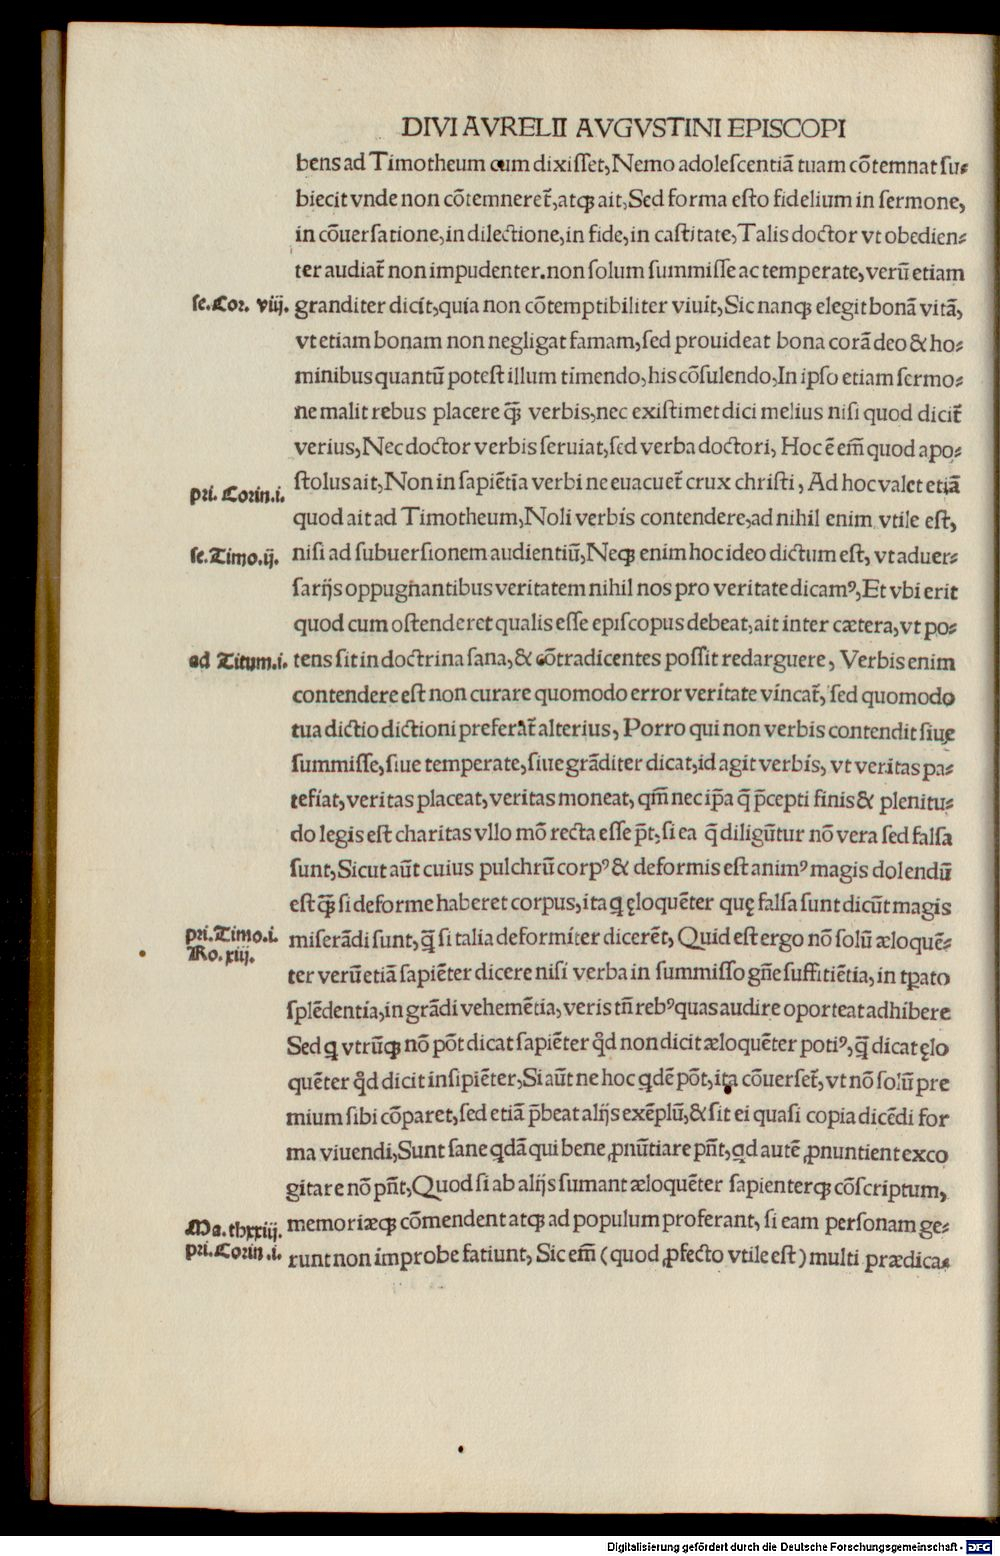 DIVI AVRELII AVGVSTINI EPISCOPI
bens ad Timotheum cum dixiſſet, Nemo adoleſcentiã tuam cõtemnat ſu⸗
biecit vnde non cõtemneret̃, atqꝫ ait, Sed forma eſto fidelium in ſermone,
in cõuerſatione, in dilectione, in fide, in caſtitate, Talis doctor vt obedien⸗
ter audiat̃ non impudenter. non ſolum ſummiſſe ac temperate, verũ etiam
ſe. Cor. viij.
granditer dicit, quia non cõtemptibiliter viuit, Sic nanqꝫ elegit bonã vitã,
vt etiam bonam non negligat famam, ſed prouideat bona corã deo & ho⸗
minibus quantũ poteſt illum timendo, his cõſulendo, In ipſo etiam ſermo⸗
ne malit rebus placere q̃ꝫ verbis, nec exiſtimet dici melius niſi quod dicit̃
verius, Nec doctor verbis ſeruiat, ſed verba doctori, Hoc ẽ em̃ quod apo⸗
pri. Corin. i.
ſtolus ait, Non in ſapiẽtia verbi ne euacuet̃ crux chriſti, Ad hoc valet etiã
quod ait ad Timotheum, Noli verbis contendere, ad nihil enim vtile eſt,
ſe. Timo. ij.
niſi ad ſubuerſionem audientiũ, Neqꝫ enim hoc ideo dictum eſt, vt aduer⸗
ſarijs oppugnantibus veritatem nihil nos pro veritate dicamꝰ, Et vbi erit
quod cum oſtenderet qualis eſſe epiſcopus debeat, ait inter cætera, vt po⸗
ad Titum. i.
tens ſit in doctrina ſana, & cõtradicentes poſſit redarguere, Verbis enim
contendere eſt non curare quomodo error veritate vincat̃, ſed quomodo
tua dictio dictioni preferat̃ alterius, Porro qui non verbis contendit ſiue
ſummiſſe, ſiue temperate, ſiue grãditer dicat, id agit verbis, vt veritas pa⸗
tefiat, veritas placeat, veritas moneat, qm̃ nec ip̃a q̃ p̃cepti finis & plenitu⸗
do legis eſt charitas vllo mõ recta eſſe p̃t, ſi ea q̃ diligũtur nõ vera ſed falſa
ſunt, Sicut aũt cuius pulchrũ corpꝰ & deformis eſt animꝰ magis dolendũ
eſt q̃ꝫ ſi deforme haberet corpus, ita ꝗ ęloquẽter quę falſa ſunt dicũt magis
pri. Timo. i.
Ro. xiij.
miſerãdi ſunt, q̃ ſi talia deformiter dicerẽt, Quid eſt ergo nõ ſolũ æloquẽ⸗
ter verũ etiã ſapiẽter dicere niſi verba in ſummiſſo gñe ſuffitiẽtia, in tꝑato
ſplẽdentia, in grãdi vehemẽtia, veris tñ rebꝰ quas audire oporteat adhibere
Sed ꝗ vtrũqꝫ nõ põt dicat ſapiẽter qͥd non dicit æloquẽter potiꝰ, q̃ dicat ęlo
quẽter qͥd dicit inſipiẽter, Si aũt ne hoc ꝗdẽ põt, ita cõuerſet̃, vt nõ ſolũ pre
mium ſibi cõparet, ſed etiã p̃beat alijs exẽplũ, & ſit ei quaſi copia dicẽdi for
ma viuendi, Sunt ſane ꝗdã qui bene ꝓnũtiare pñt, ꝗd autẽ ꝓnuntient exco
gitare nõ pñt, Quod ſi ab alijs ſumant æloquẽter ſapienterqꝫ cõſcriptum,
Ma. thxxiij.
memoriæqꝫ cõmendent atqꝫ ad populum proferant, ſi eam perſonam ge⸗
pri. Corin. i.
runt non improbe fatiunt, Sic em̃ (quod ꝓfecto vtile eſt) multi prædica⸗
Digitalisierung gefördert durch die Deutsche Forschungsgemeinschaft - DFG